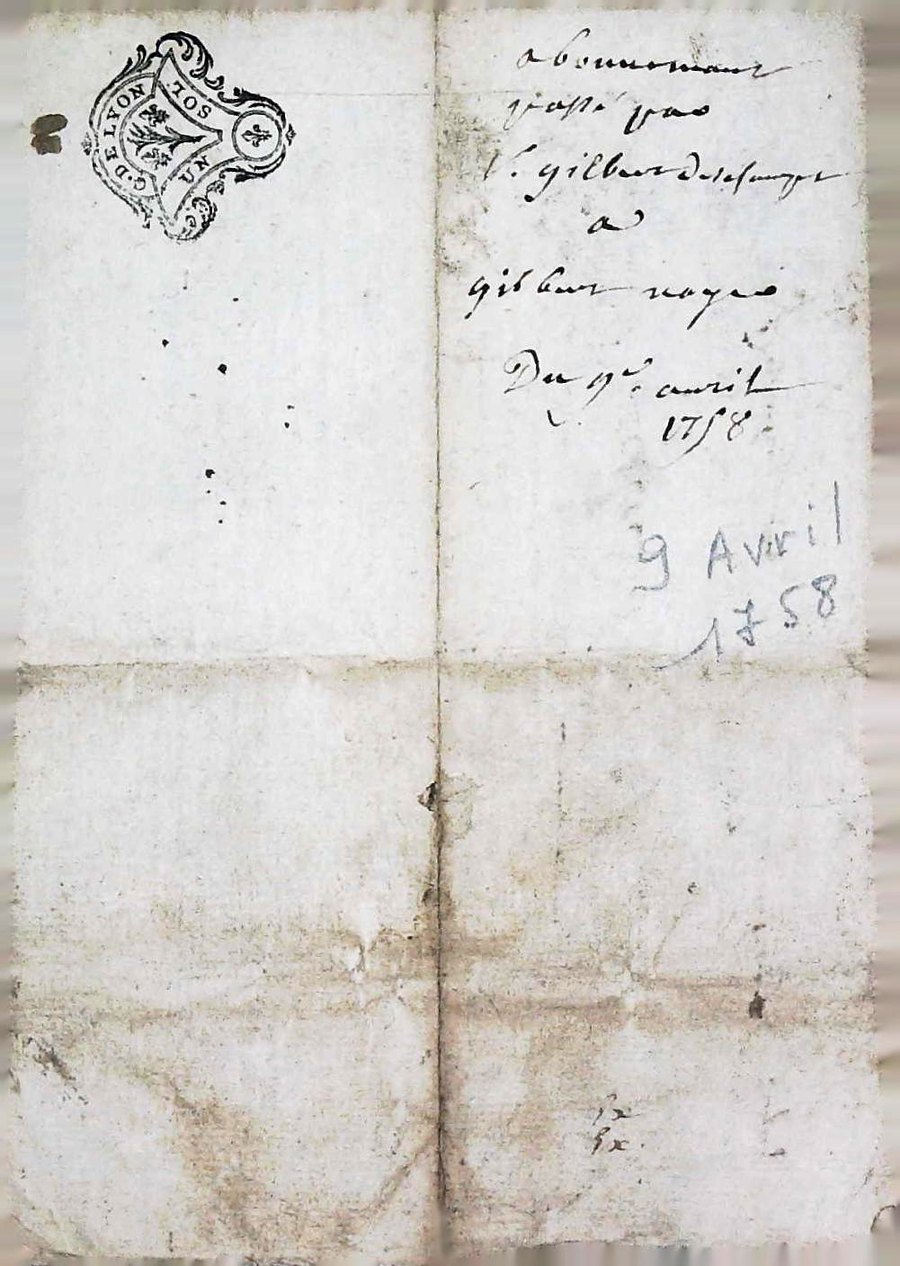 G. DE LYON
UN SOL
abonnemant
passé par
Sr. gilbert deschamps
a
gilbert
Du 9e. avril
1758
9 Avril
1758